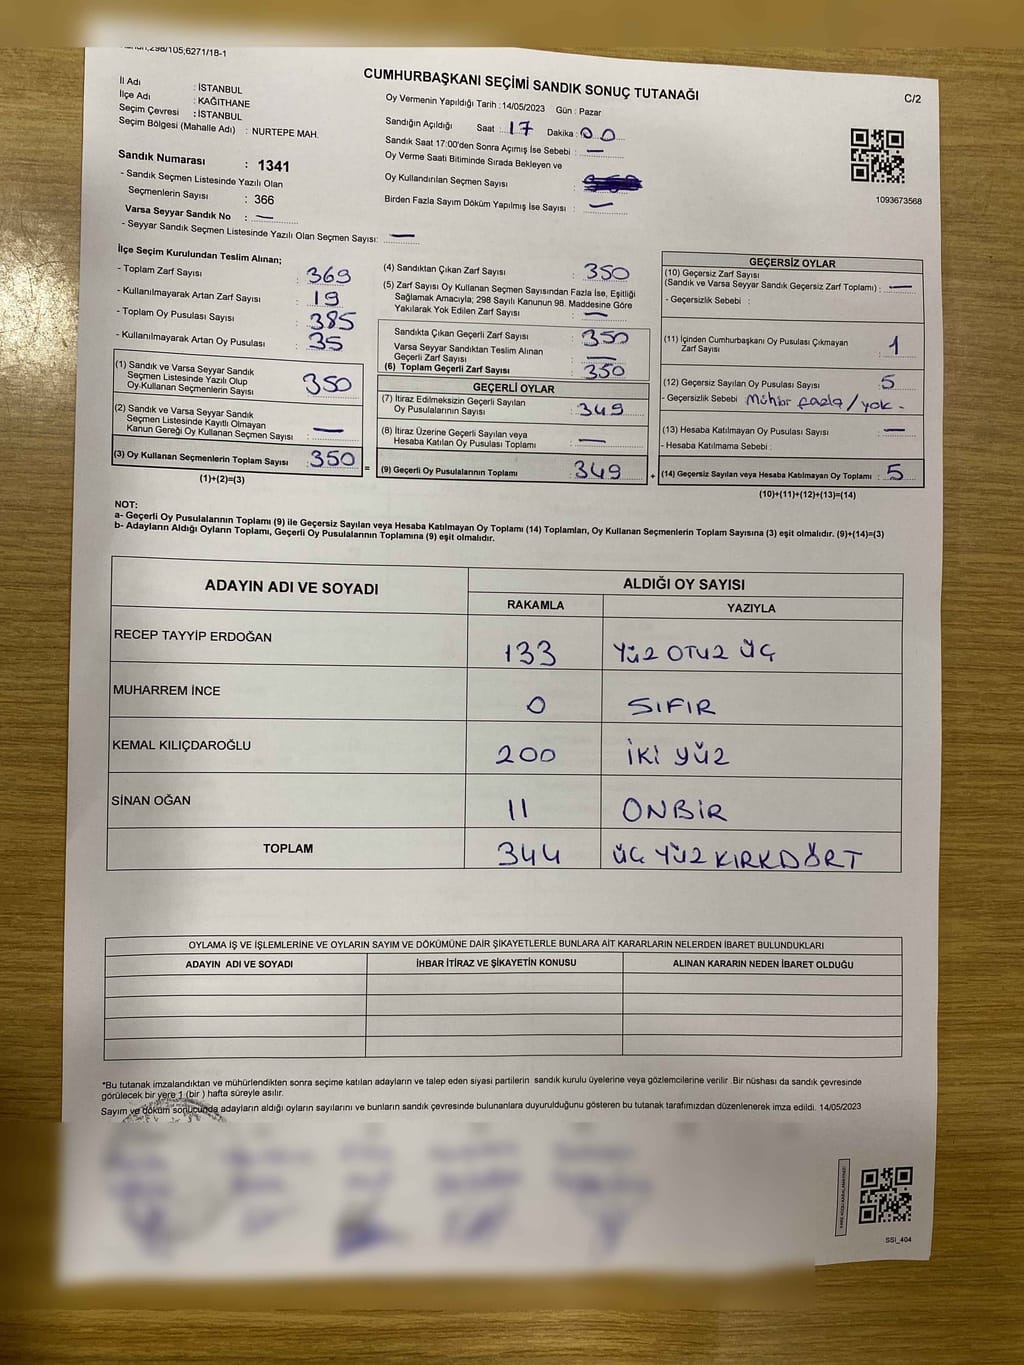 298/105;6271/18-1
CUMHURBAŞKANI SEÇİMİ SANDIK SONUÇ TUTANAĞI
C/2
İl Adı : İSTANBUL
İlçe Adı : KAĞITHANE
Seçim Çevresi : İSTANBUL
Seçim Bölgesi (Mahalle Adı) : NURTEPE MAH.
Oy Vermenin Yapıldığı Tarih : 14/05/2023 Gün : Pazar
Sandığın Açıldığı Saat : 17 Dakika : 00
Sandık Saat 17:00'den Sonra Açımış İse Sebebi : —
Oy Verme Saati Bitiminde Sırada Bekleyen ve
Oy Kullandırılan Seçmen Sayısı :
Birden Fazla Sayım Döküm Yapılmış İse Sayısı : —
1093673568
Sandık Numarası : 1341
- Sandık Seçmen Listesinde Yazılı Olan
Seçmenlerin Sayısı : 366
Varsa Seyyar Sandık No : —
- Seyyar Sandık Seçmen Listesinde Yazılı Olan Seçmen Sayısı: —
İlçe Seçim Kurulundan Teslim Alınan;
- Toplam Zarf Sayısı : 369
- Kullanılmayarak Artan Zarf Sayısı : 19
- Toplam Oy Pusulası Sayısı : 385
- Kullanılmayarak Artan Oy Pusulası : 35
(1) Sandık ve Varsa Seyyar Sandık
Seçmen Listesinde Yazılı Olup
Oy Kullanan Seçmenlerin Sayısı : 350
(2) Sandık ve Varsa Seyyar Sandık
Seçmen Listesinde Kayıtlı Olmayan
Kanun Gereği Oy Kullanan Seçmen Sayısı : —
(3) Oy Kullanan Seçmenlerin Toplam Sayısı : 350
(1)+(2)=(3)
=
(4) Sandıktan Çıkan Zarf Sayısı : 350
(5) Zarf Sayısı Oy Kullanan Seçmen Sayısından Fazla İse, Eşitliği
Sağlamak Amacıyla; 298 Sayılı Kanunun 98. Maddesine Göre
Yakılarak Yok Edilen Zarf Sayısı : —
Sandıkta Çıkan Geçerli Zarf Sayısı : 350
Varsa Seyyar Sandıktan Teslim Alınan
Geçerli Zarf Sayısı : —
(6) Toplam Geçerli Zarf Sayısı : 350
GEÇERLİ OYLAR
(7) İtiraz Edilmeksizin Geçerli Sayılan
Oy Pusulalarının Sayısı : 349
(8) İtiraz Üzerine Geçerli Sayılan veya
Hesaba Katılan Oy Pusulası Toplamı : —
(9) Geçerli Oy Pusulalarının Toplamı : 349
+
GEÇERSİZ OYLAR
(10) Geçersiz Zarf Sayısı
(Sandık ve Varsa Seyyar Sandık Geçersiz Zarf Toplamı) : —
- Geçersizlik Sebebi :
(11) İçinden Cumhurbaşkanı Oy Pusulası Çıkmayan
Zarf Sayısı : 1
(12) Geçersiz Sayılan Oy Pusulası Sayısı : 5
- Geçersizlik Sebebi : Mühür fazla / yok -
(13) Hesaba Katılmayan Oy Pusulası Sayısı : —
- Hesaba Katılmama Sebebi :
(14) Geçersiz Sayılan veya Hesaba Katılmayan Oy Toplamı : 5
(10)+(11)+(12)+(13)=(14)
NOT:
a- Geçerli Oy Pusulalarının Toplamı (9) ile Geçersiz Sayılan veya Hesaba Katılmayan Oy Toplamı (14) Toplamları, Oy Kullanan Seçmenlerin Toplam Sayısına (3) eşit olmalıdır. (9)+(14)=(3)
b- Adayların Aldığı Oyların Toplamı, Geçerli Oy Pusulalarının Toplamına (9) eşit olmalıdır.
ADAYIN ADI VE SOYADI ALDIĞI OY SAYISI
RAKAMLA YAZIYLA
RECEP TAYYİP ERDOĞAN 133 YÜZ OTUZ ÜÇ
MUHARREM İNCE 0 SIFIR
KEMAL KILIÇDAROĞLU 200 İKİ YÜZ
SİNAN OĞAN 11 ONBİR
TOPLAM 344 ÜÇ YÜZ KIRKDÖRT
OYLAMA İŞ VE İŞLEMLERİNE VE OYLARIN SAYIM VE DÖKÜMÜNE DAİR ŞİKAYETLERLE BUNLARA AİT KARARLARIN NELERDEN İBARET BULUNDUKLARI
ADAYIN ADI VE SOYADI İHBAR İTİRAZ VE ŞİKAYETİN KONUSU ALINAN KARARIN NEDEN İBARET OLDUĞU
*Bu tutanak imzalandıktan ve mühürlendikten sonra seçime katılan adayların ve talep eden siyasi partilerin sandık kurulu üyelerine veya gözlemcilerine verilir .Bir nüshası da sandık çevresinde
görülecek bir yere 1 (bir ) hafta süreyle asılır.
Sayım ve döküm sonucunda adayların aldığı oyların sayılarını ve bunların sandık çevresinde bulunanlara duyurulduğunu gösteren bu tutanak tarafımızdan düzenlenerek imza edildi. 14/05/2023
SSI_404